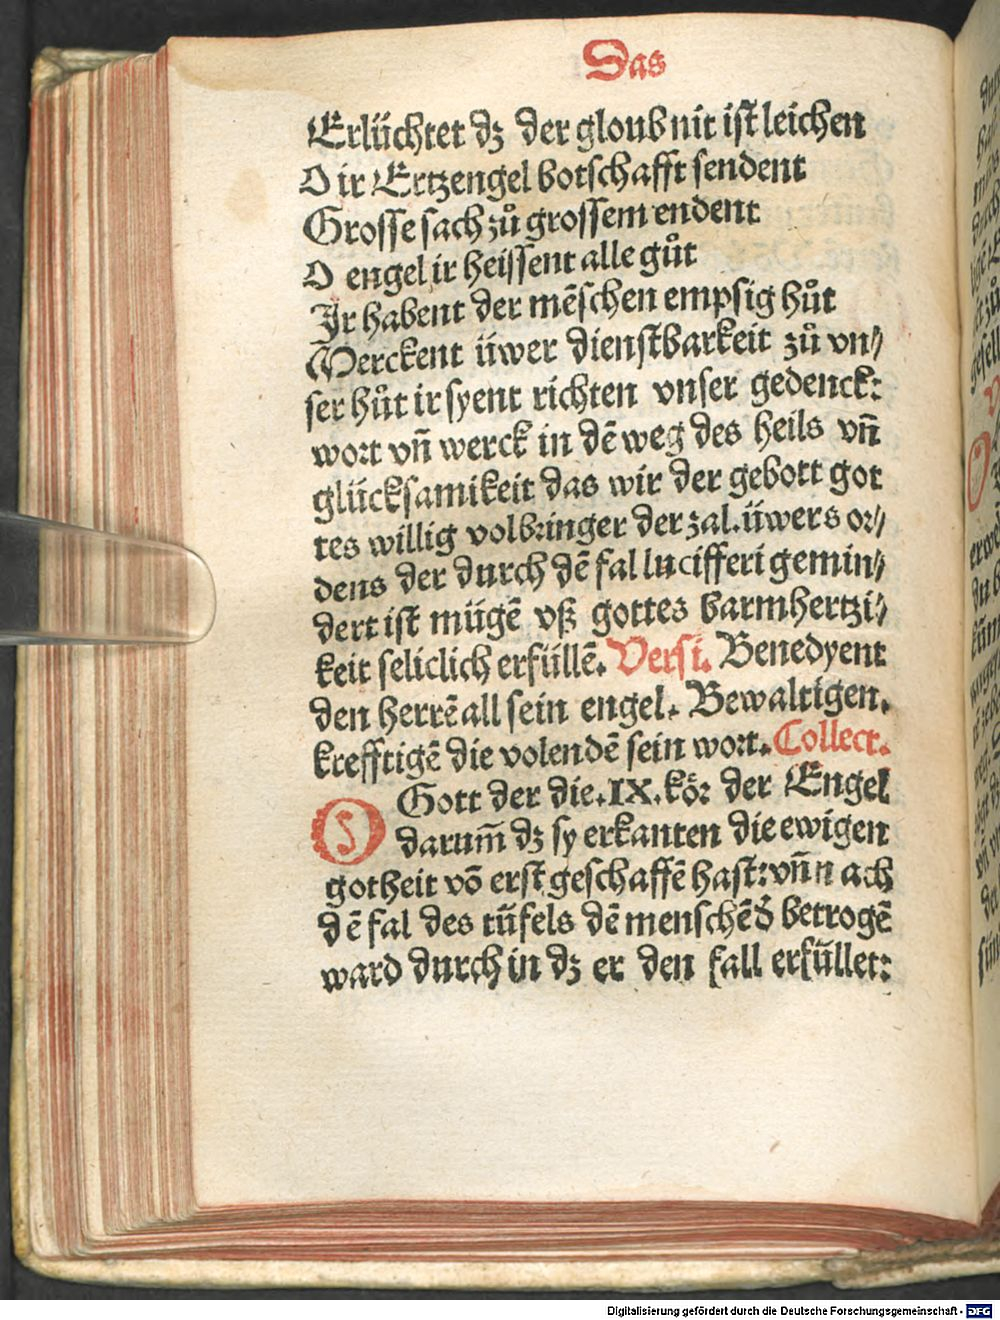 Das
Erlüchtet dz der gloub nit ist leichen
O ir Ertzengel botschafft sendent
Grosse sach zů grossem endent
O engel ir heissent alle gůt
Ir habent der mēschen empsig hůt
Merckent üwer dienstbarkeit zů vn⸗
ser hůt ir syent richten vnser gedenck:
wort vn̄ werck in dē weg des heils vn̄
glücksamikeit das wir der gebott got
tes willig volbringer der zal. üwers or⸗
dens der durch dē fal lucifferi gemin⸗
dert ist mügē vß gottes barmhertzi⸗
keit seliclich erfüllē. Versi. Benedyent
den herrē all sein engel. Bewaltigen.
krefftigē die volendē sein wort. Collect.
O Gott der die .IX. kör der Engel
darum̄ dz sy erkanten die ewigen
gotheit vō erst geschaffē hast: vn̄ nach
dē fal des tüfels dē menschē d' betrogē
ward durch in dz er den fall erfüllet:
Digitalisierung gefördert durch die Deutsche Forschungsgemeinschaft - DFG